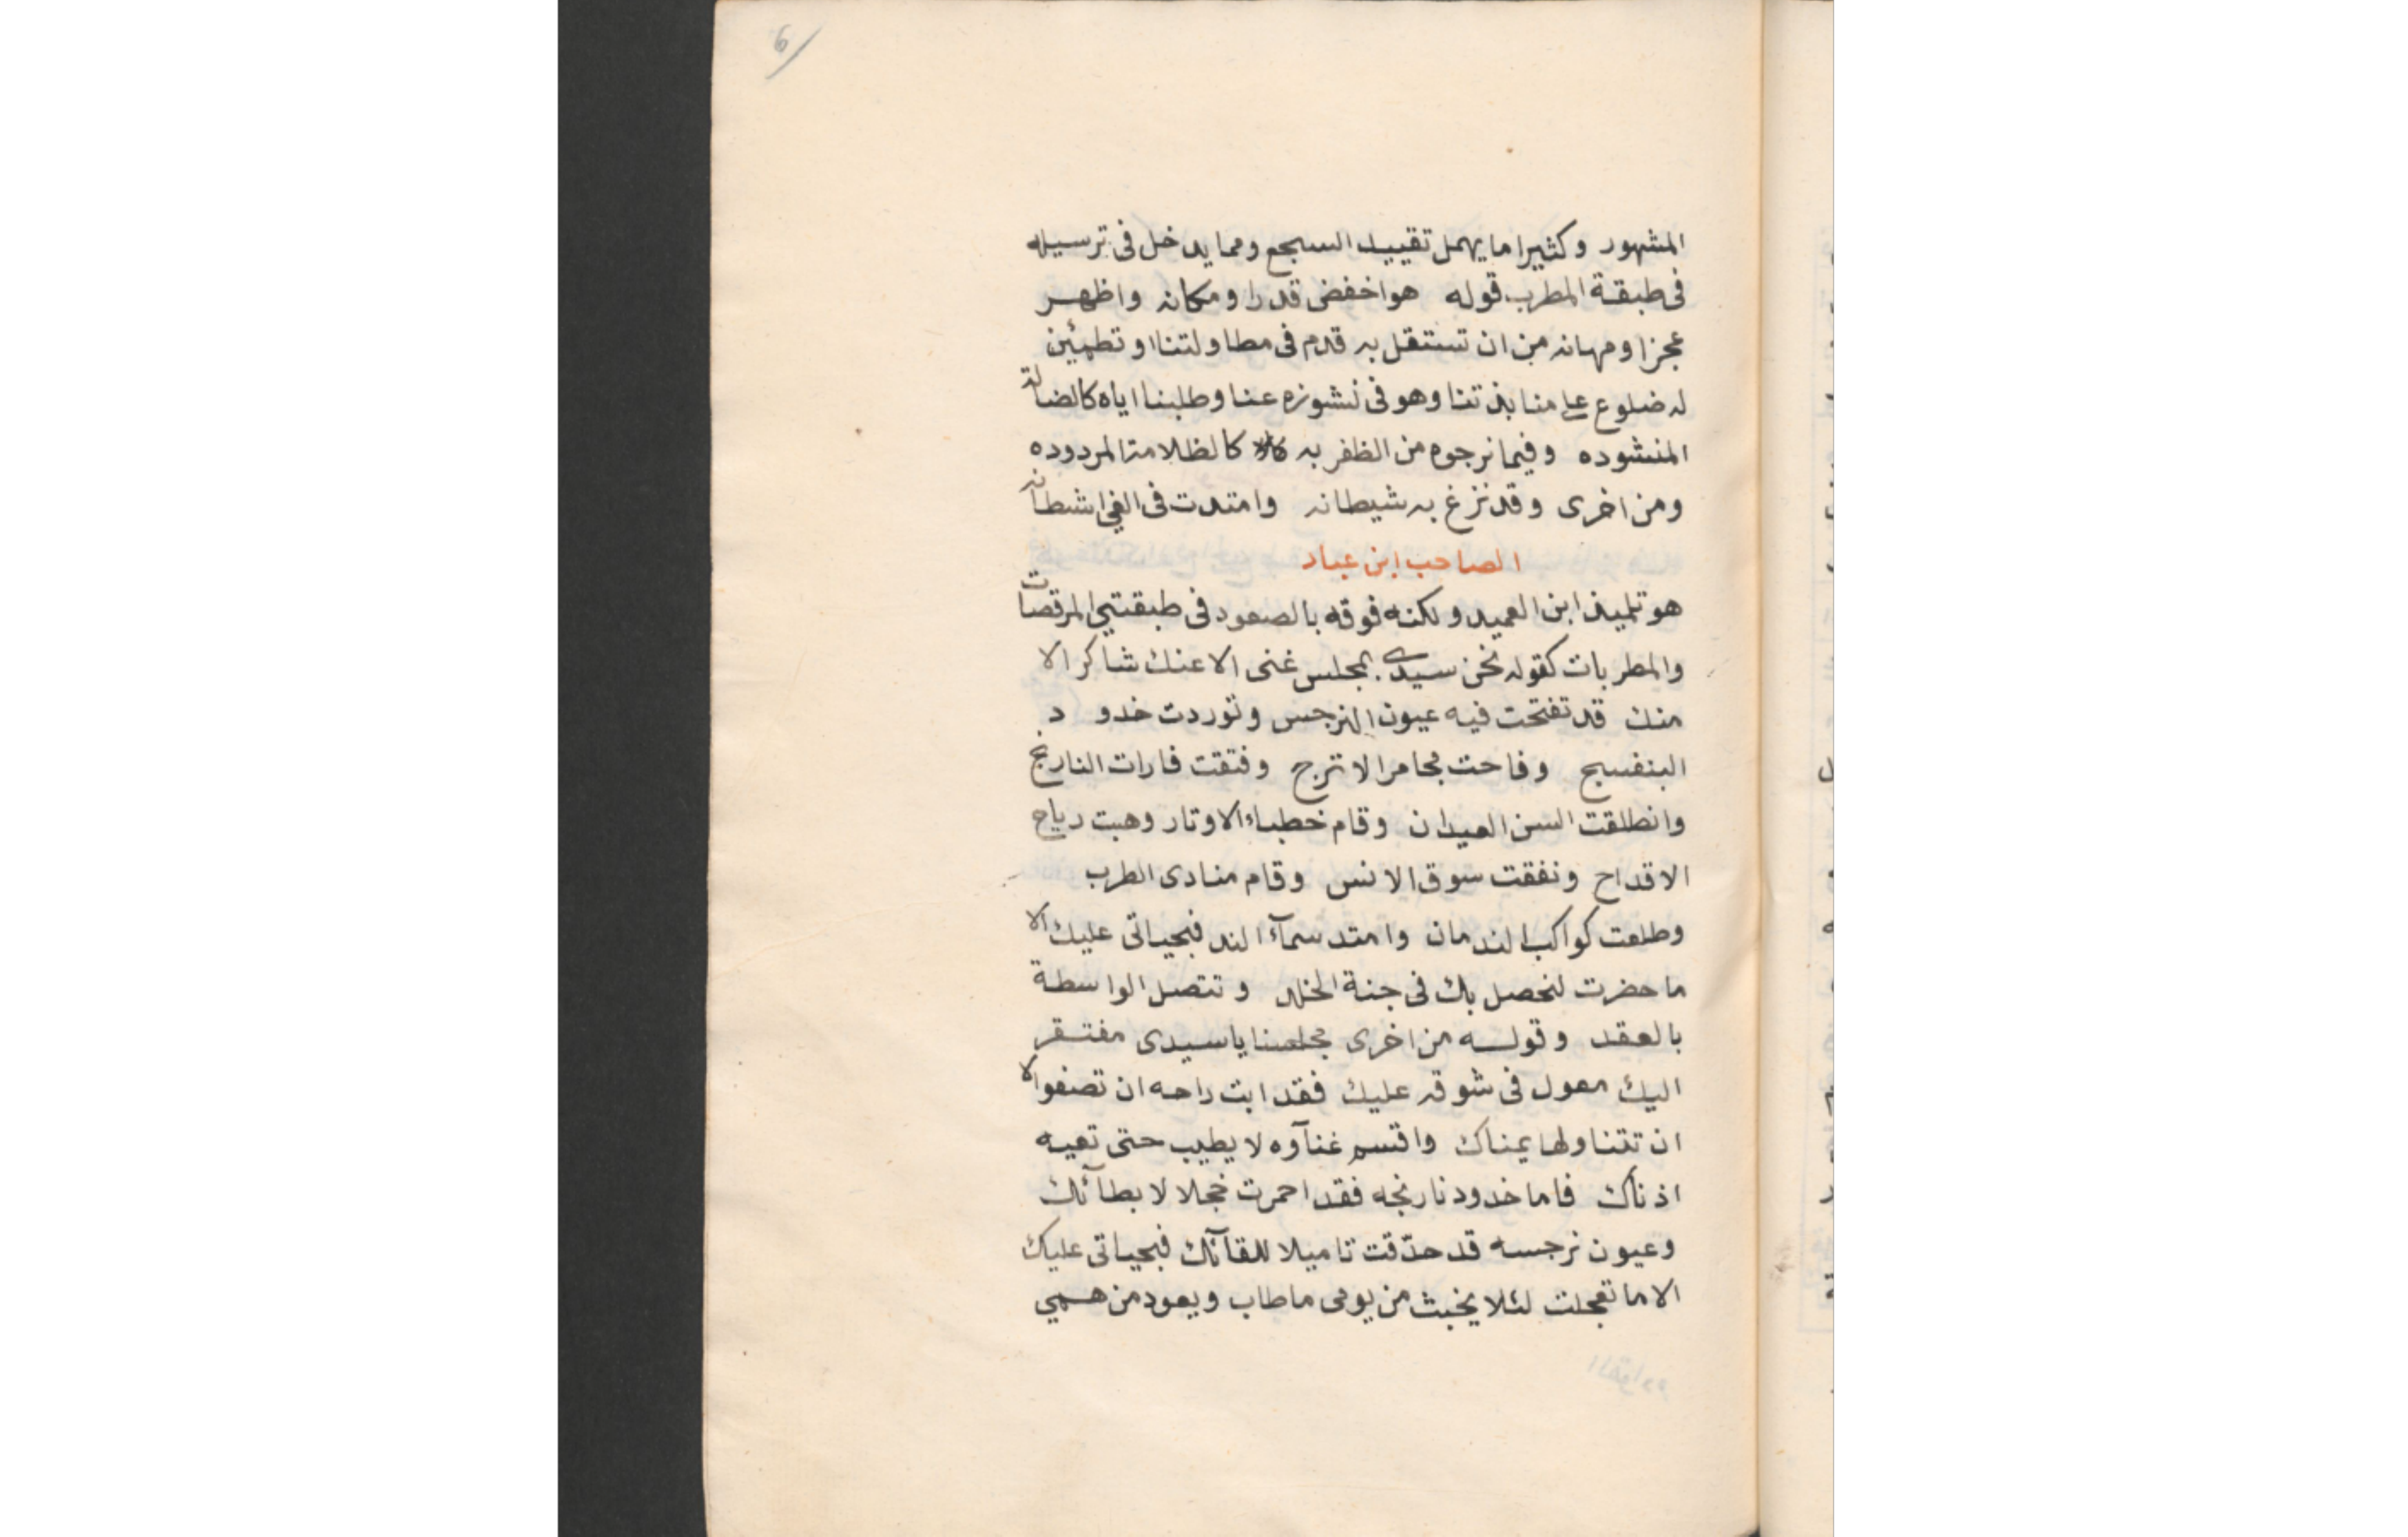 6
المشهور وكثيرا ما يهمل تقييد السجع ومما يدخل فى ترسيله
فى طبقة المطرب قوله هو اخفض قدرا ومكانه واظهر
عجزا ومهانه من ان تستقل به قدم فى مطاولتنا او تطمئن
له ضلوع على منابذتنا وهو فى نشوزه عنا وطلبنا اياه كالضالة
المنشوده وفيما نرجوه من الظفر به كالظلامة المردوده
ومن اخرى وقد نزغ به شيطانه وامتدت فى الغي اشطانه
الصاحب ابن عباد
هو تلميذ ابن العميد ولكنه فوقه بالصعود فى طبقتي المرقصات
والمطربات كقوله نحن سيدى بمجلس غنى الا عنك شاكر الا
منك قد تفتحت فيه عيون النرجس وتوردت خدود
البنفسج وفاحت مجامر الاترج وفتقت فارات النارنج
وانطلقت السن العيدان وقام خطباء الاوتار وهبت رياح
الاقداح ونفقت سوق الانس وقام منادى الطرب
وطلعت كواكب الندمان وامتد سمآء الند فبحياتى عليك الا
ما حضرت لنحصل بك فى جنة الخلد وتتصل الواسطة
بالعقد وقوله من اخرى مجلسنا يا سيدى مفتقر
اليك معول فى شوقه عليك فقد ابت راحه ان تصفوا الا
ان تتناولها يمناك واقسم غنآوه لا يطيب حتى تعيه
اذناك فاما خدود نارنجه فقد احمرت خجلا لابطآئك
وعيون نرجسه قد حدّقت تاميلا للقآئك فبحياتى عليك
الا ما تعجلت لئلا يخبث من يومى ما طاب ويعود من همي